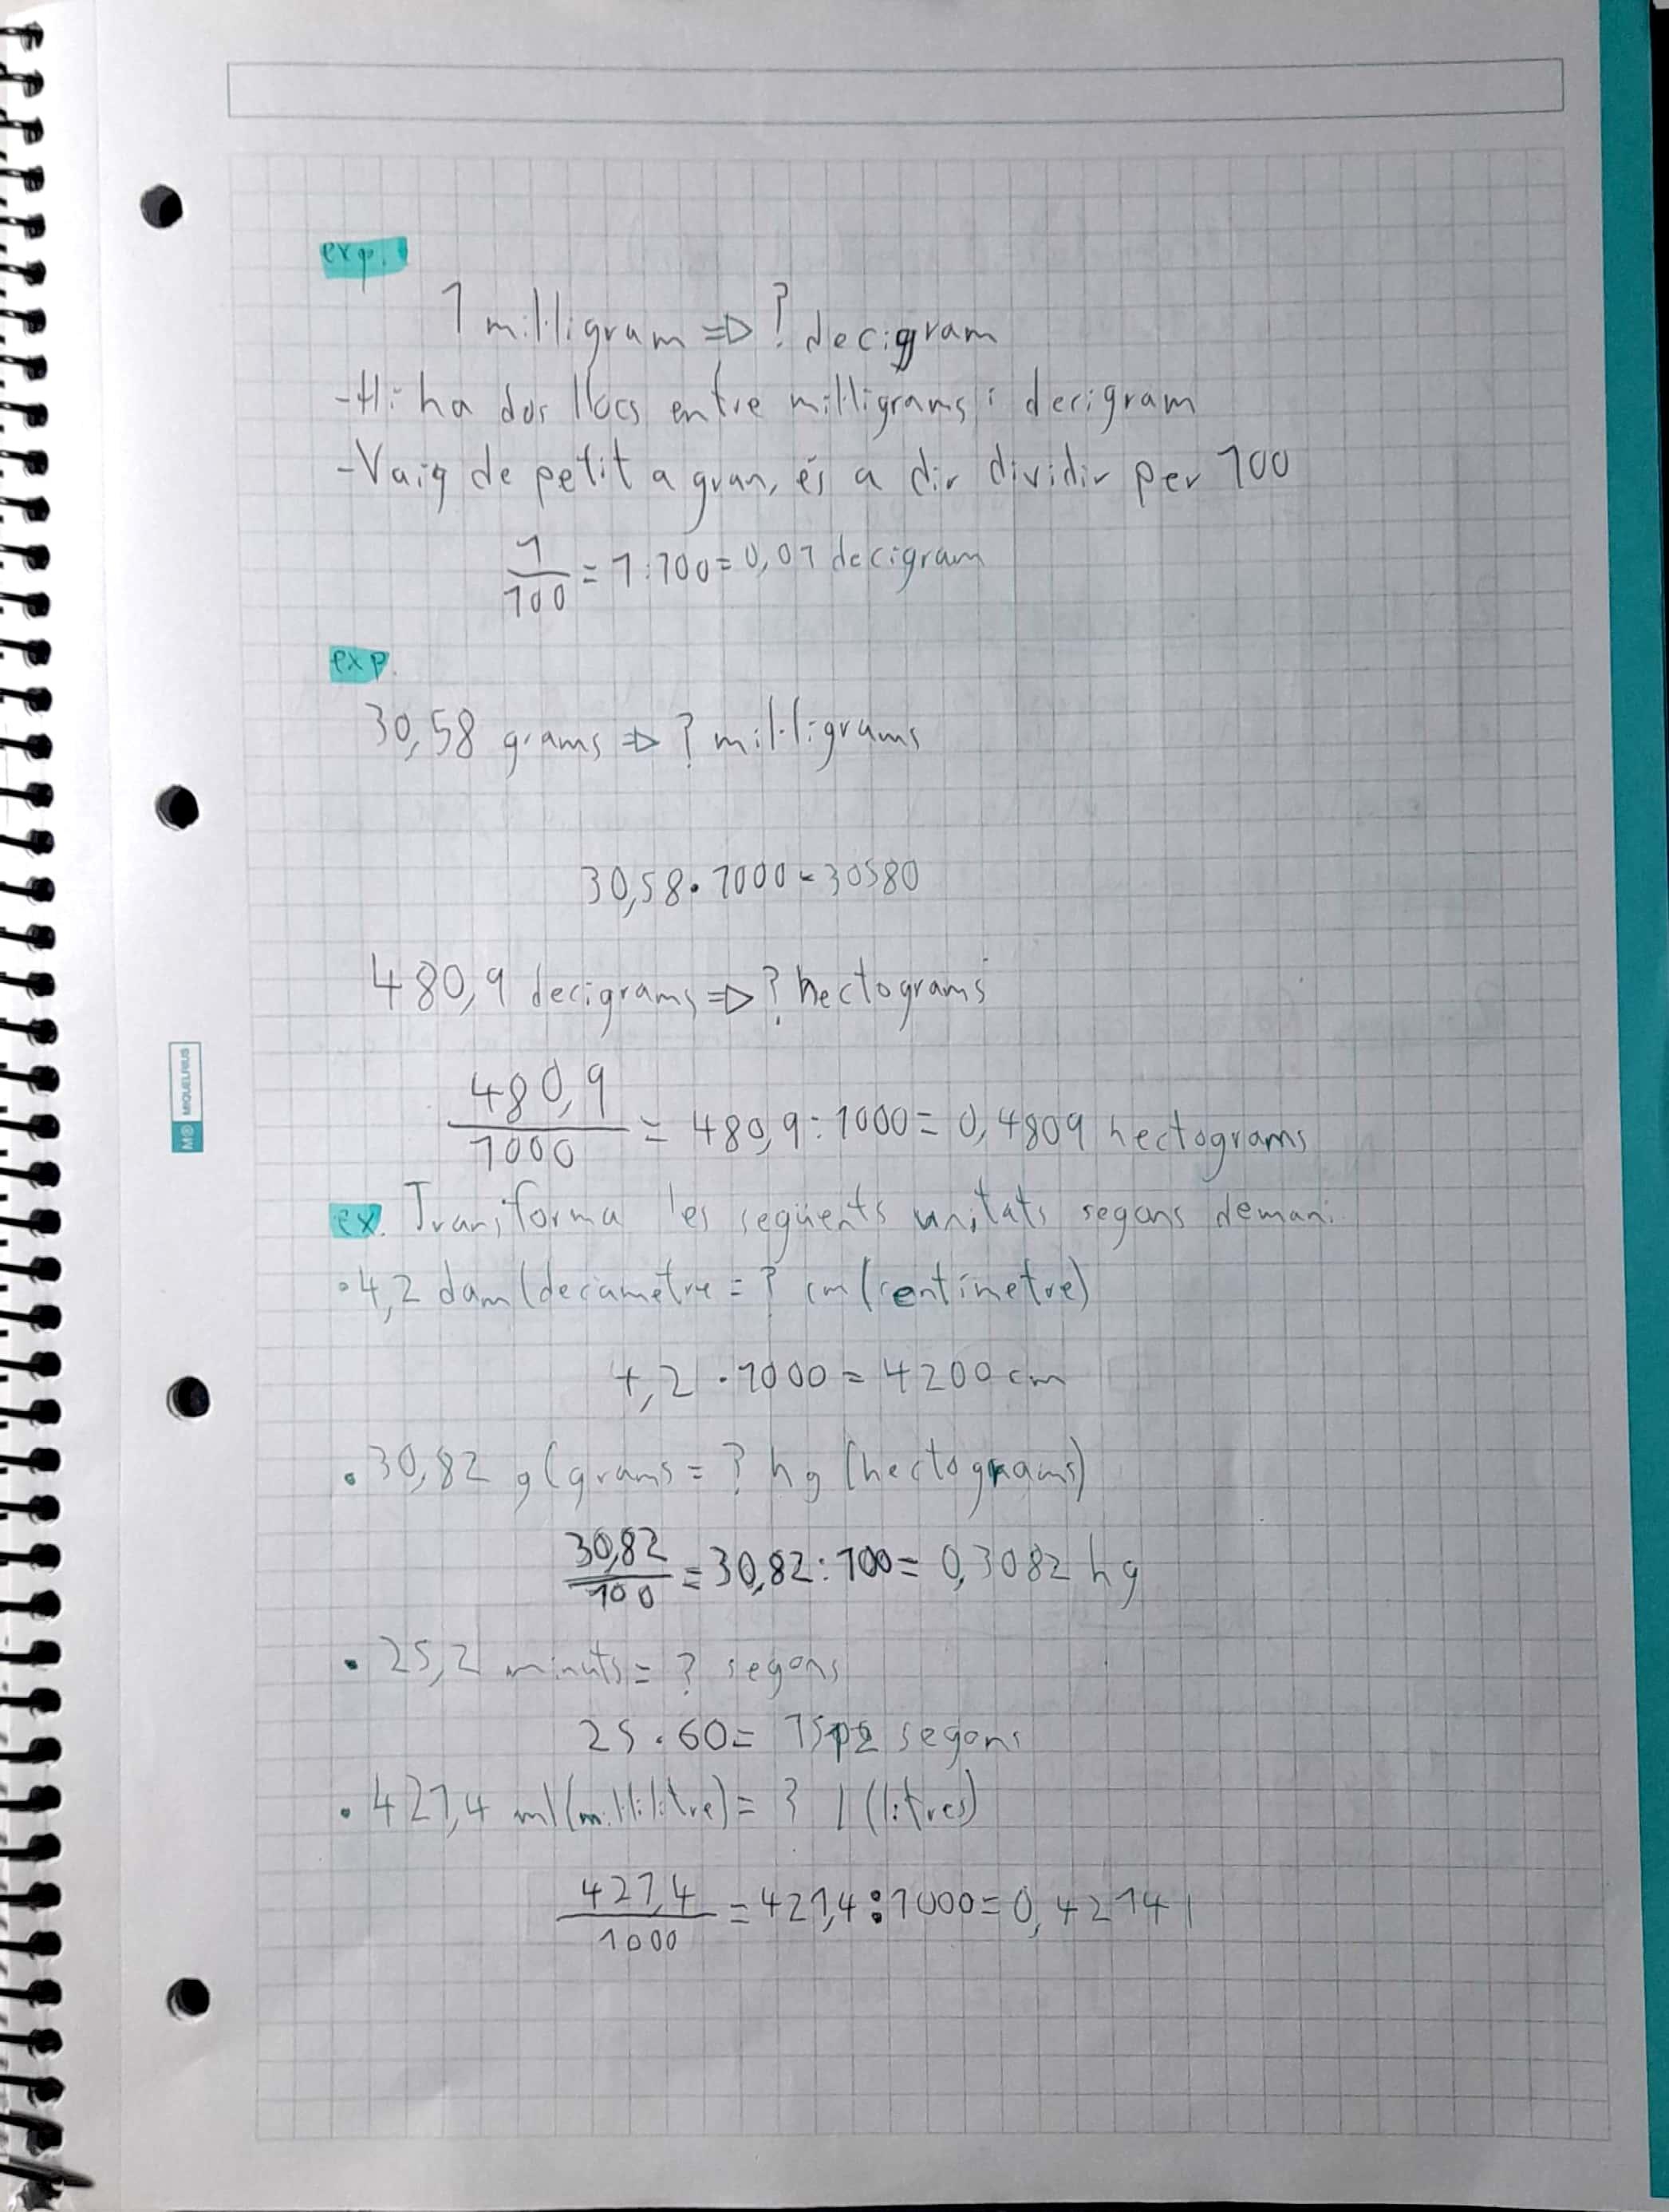 exp.
1 mil·ligram => ? decigram
-Hi ha dos llocs entre mil·ligrams i decigram
-Vaig de petit a gran, és a dir dividir per 100
1/100 = 1:100 = 0,01 decigram
exp.
30,58 grams => ? mil·ligrams
30,58 · 1000 = 30580
480,9 decigrams => ? hectograms
480,9/1000 = 480,9 : 1000 = 0,4809 hectograms
ex. Transforma les següents unitats segons deman:
• 4,2 dam (decàmetre = ? cm (centímetre)
4,2 · 1000 = 4200 cm
• 30,82 g (grams = ? hg (hectograms)
30,82/100 = 30,82 : 100 = 0,3082 hg
• 25,2 minuts = ? segons
25 · 60 = segons
• 421,4 ml (mil·lilitre) = ? l (litres)
421,4/1000 = 421,4 : 1000 = 0,4214 l
MIQUELRIUS